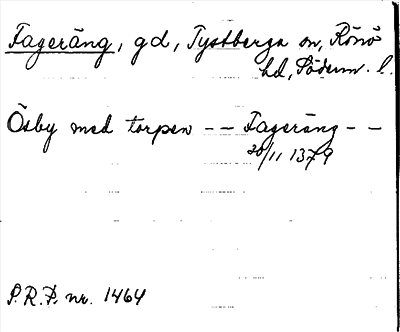 Fageräng, gd, Tystberga sn, Rönö
hd, Söderm. l.
Ösby med torpen -- Fageräng --
30/11 1379
S.R.P. nr. 1464